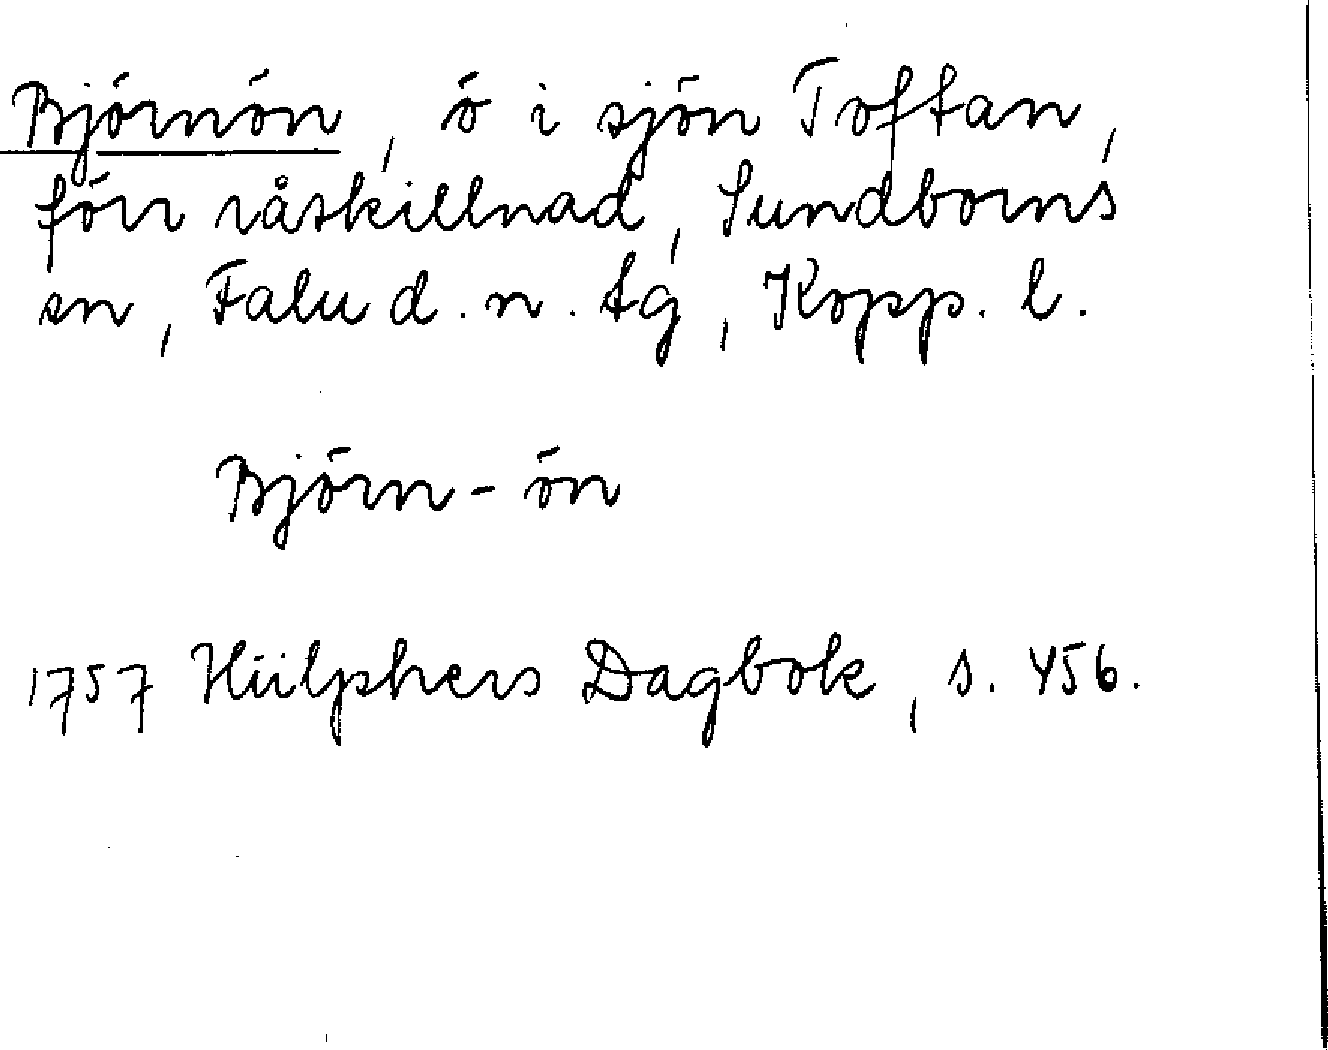 Björnön, ö i sjön Toftan,
förr råskillnad, Sundborns
sn, Falu d. n. tg, Kopp. l.
Björn-ön
1757 Hülphers Dagbok, s. 456.